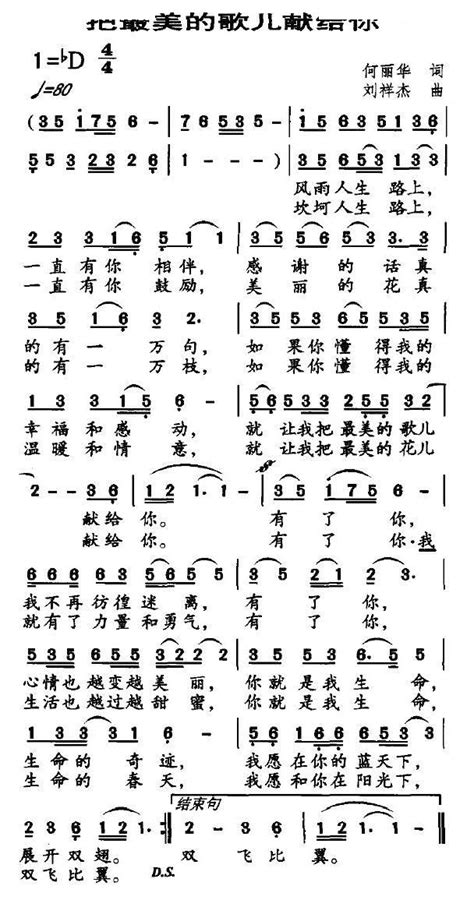 把最美的歌儿献给你
1=♭D 4/4
♩=80
何丽华 词
刘祥杰 曲
(3 5 i 7 5 6 - | 7 6 5 3 5 - | i 5 6 3 5 1 3 6
5 5 3 2 3 2 6 | 1 - - - ) | 3 5 6 5 3 1 3 3
风雨人生 路上,
坎坷人生 路上,
2 3 3 1 6 5 1 1 | 3 5 5 6 5 3 3· 3
一直有你 相伴, 感谢的话真
一直有你 鼓励, 美丽的花真
3 5 1 6 3 2· | 3 5 5 3 6 5 5 3 5
的有一 万句, 如果你懂 得我的
的有一 万枝, 如果你懂 得我的
1 3 3 1 5 6 - | 5 6 5 5 5 3 5 3 2
幸福和感 动, 就 让我把 最美的 歌儿
温暖和情 意, 就 让我把 最美的 花儿
2 - - 3 6 | 1 2 1· 1 - | 3 5 i 7 5 6 -
献给 你。 有了 你,
献给 你。 有了 你·我
6 6 6 6 3 5 6 5 5 | 3 5 2 1 2 3·
我不再彷徨迷 离, 有 了 你,
就有了力量和勇气, 有 了 你,
5 3 5 6 5 5 3 2 2 2 | 5 5 3 5 3 6· 5 5
心情也越变越美 丽, 你就是我生 命,
生活也越过越甜 蜜, 你就是我生 命,
1 3 3 3 3 1 6 - | 5 6 1 6 1 6 6 5 3 3
生命的 奇 迹, 我愿在你的 蓝天下,
生命的 春 天, 我愿和你在 阳光下,
结束句
2 3 3 6 1 2 1· :‖ 2 - 3 6 | 1 1 2 1 1 - ‖
展开双翅。 双 飞比 翼。
双飞比翼。 D.S.